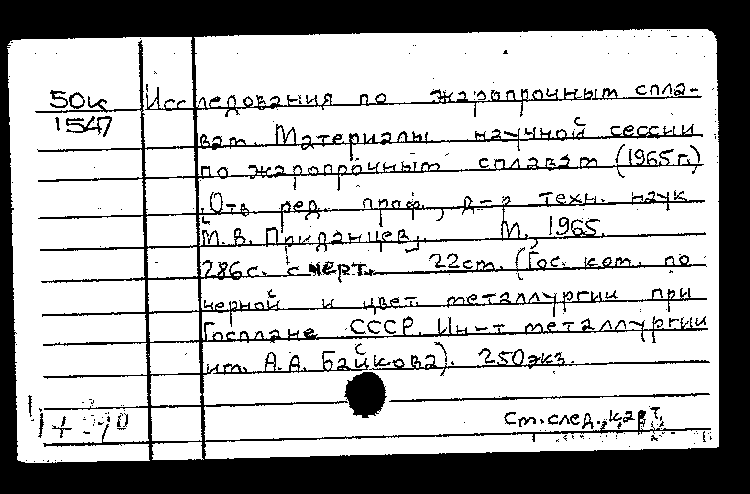 50к Исследования по жаропрочным спла-
1547 вам. Материалы научной сессии
по жаропрочным сплавам (1965 г.)
[Отв. ред. проф., д-р техн. наук
М.В. Приданцев]. М., 1965.
286с. с черт. 22см. (Гос. ком. по
черной и цвет. металлургии при
Госплане СССР. Ин-т металлургии
им. А.А. Байкова). 250экз.
См. след. карт.